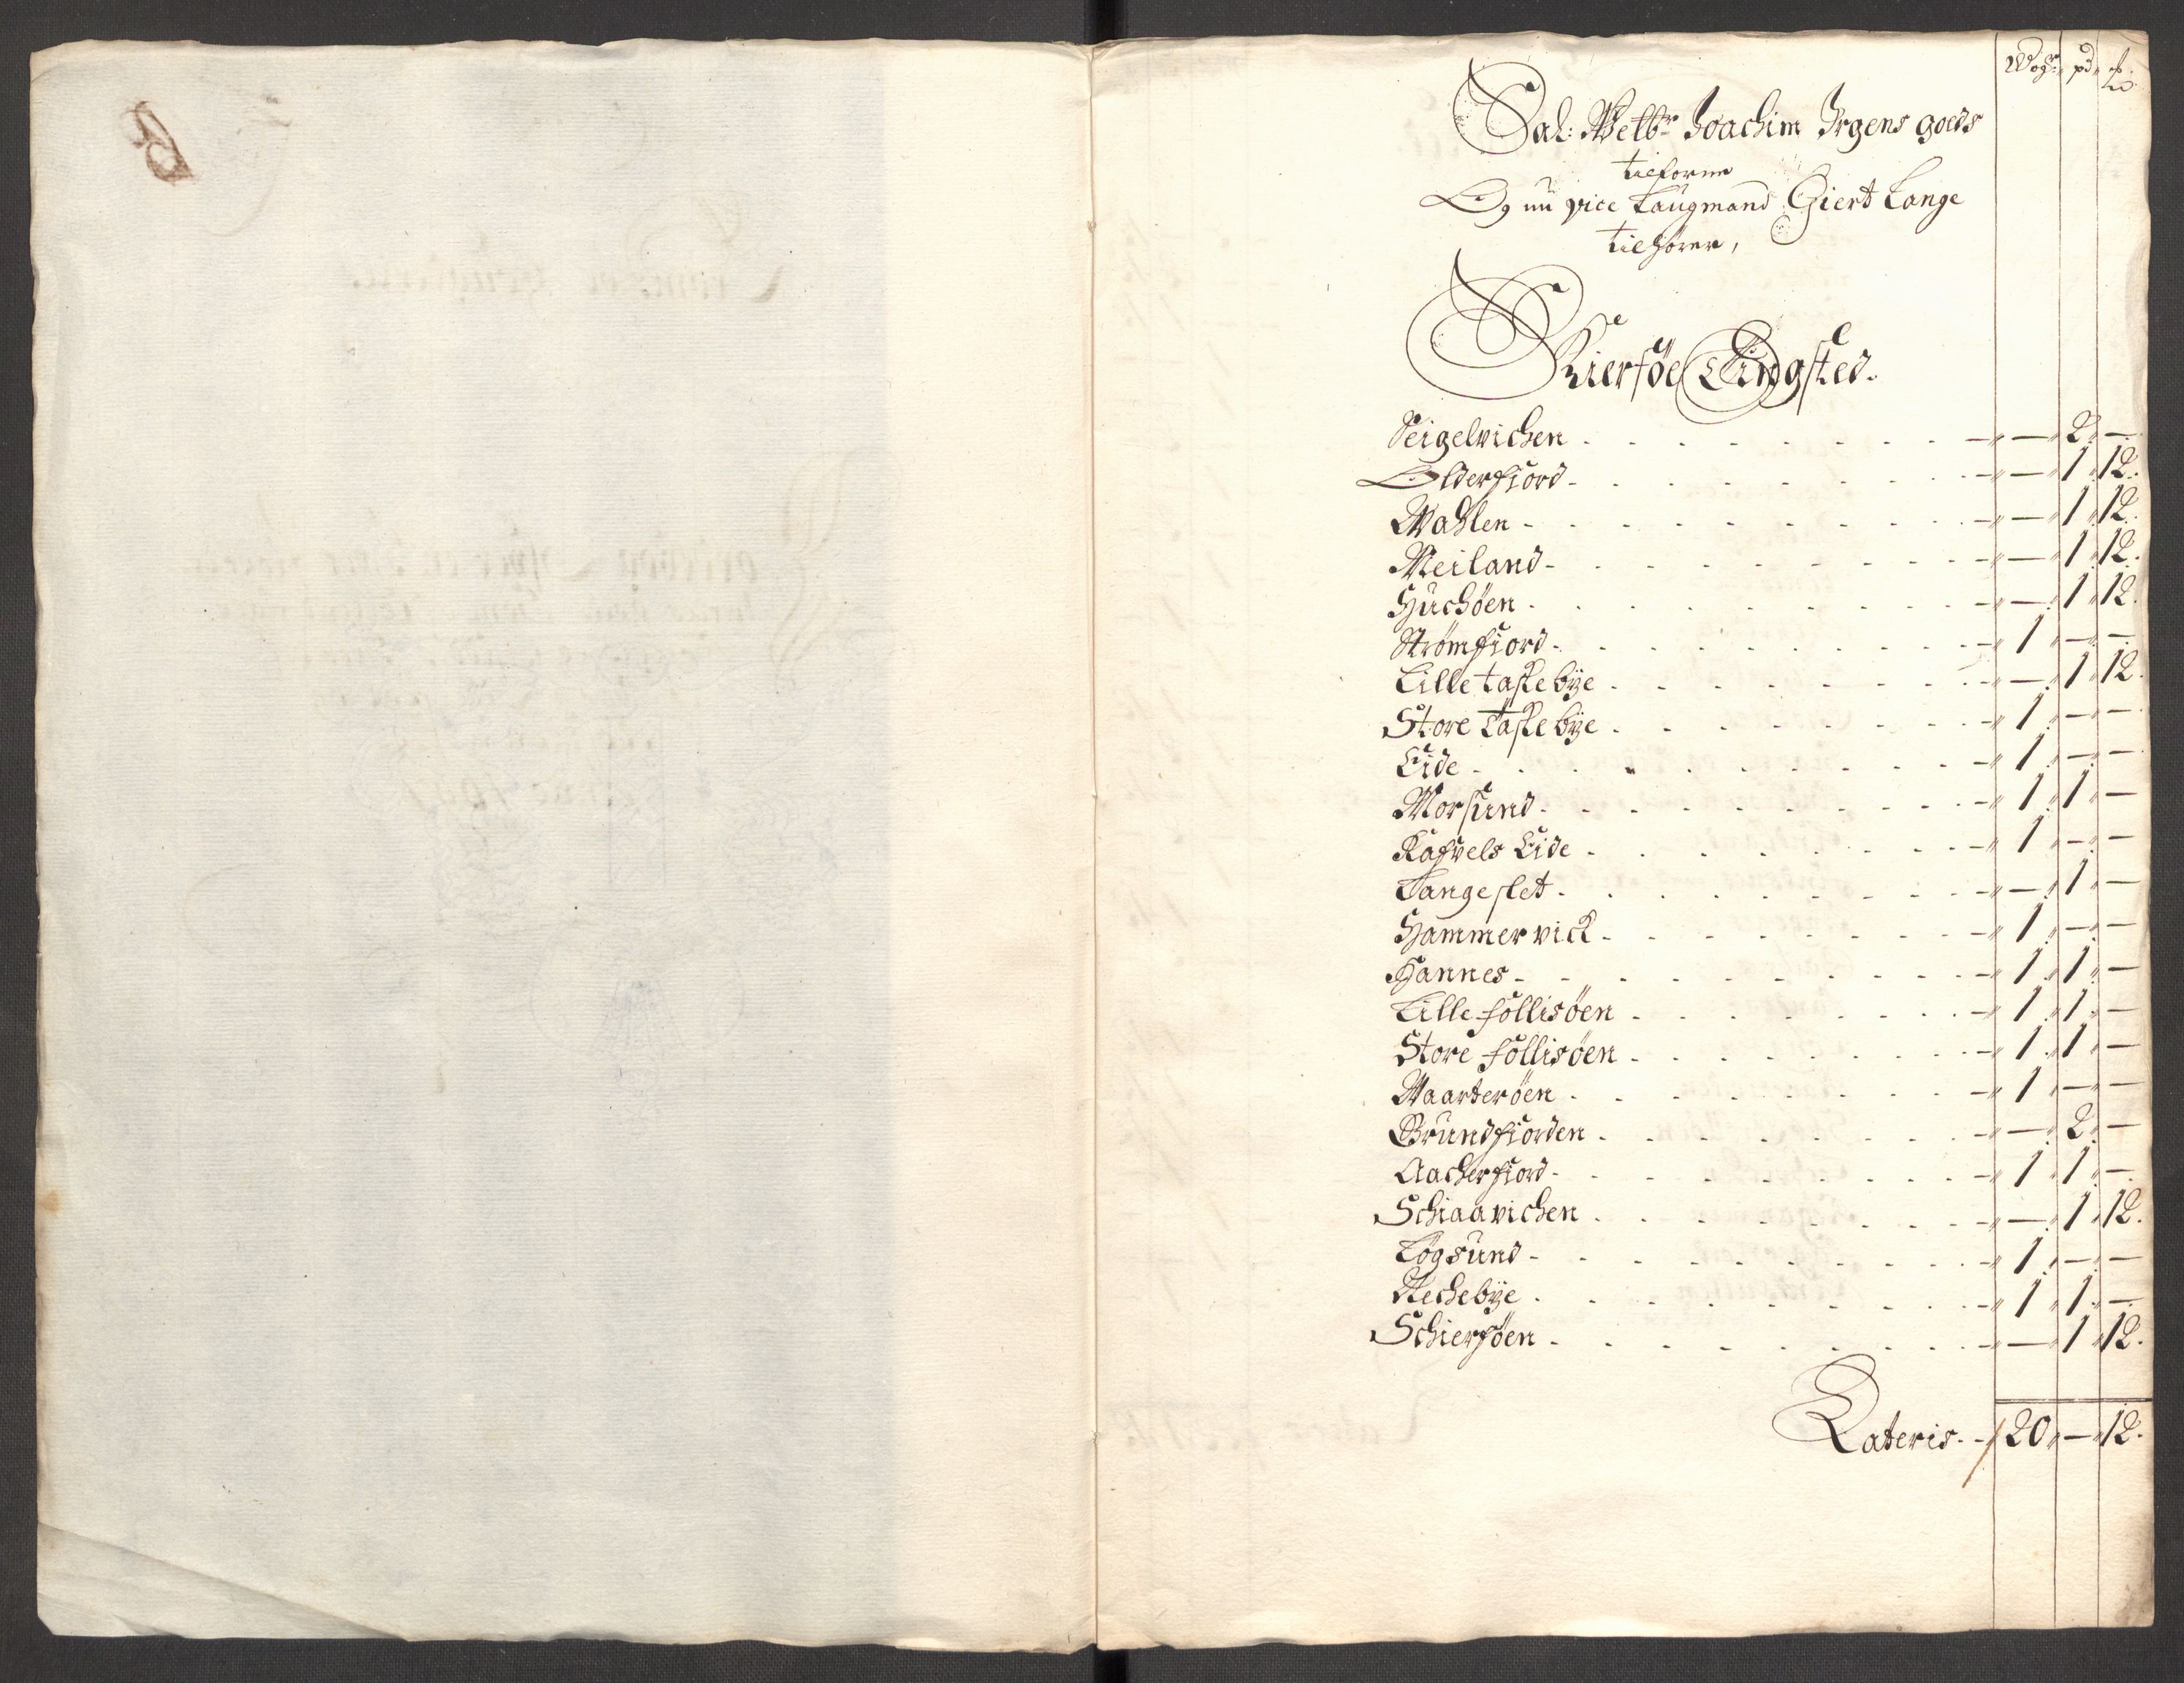 Wogr pd £
Sal: Welbr Joachim Irgens goeds
tilforne
Og nu vice Laugmand Giert Lange
tilhører,
Skiersøe Tingsted.
Seigelvichen - - - 2 -
Olderfiord - - - 1 12.
Wahlen - - - 1 12.
Meiland - - - 1 12.
Huchøen - - - 1 12.
Strømfiord - - 1 - -
Lille taskebÿe - - - 1 12.
Store taskebÿe - - 1 - -
Eide - - 1 - -
Morsund - - 1 1 -
Rafvels Eide - - 1 - -
Langeslet - - - 1 -
Hammervick - - 1 - -
Hannes - - 1 1 -
Lille follisøen - - 1 1 -
Store follisøen - - 1 1 -
Waarterøen - - 1 - -
Grundfiorden - - - 2 -
Aacherfiord - - 1 1 -
Schiaavichen - - - 1 12.
Løgsund - - 1 - -
Rechebÿe - - 1 1 -
Schiersøen - - - 1 12.
Lateris - - 20 - 12.